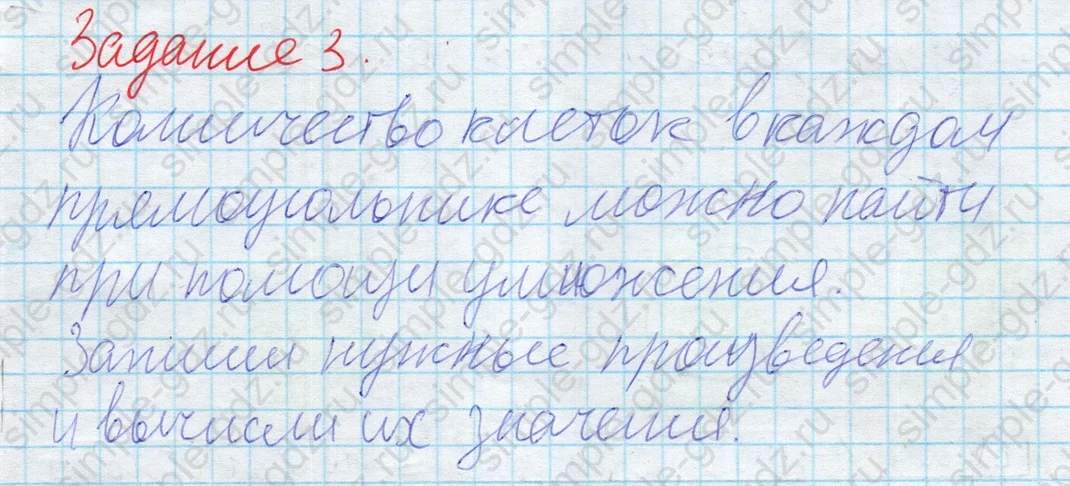 Задание 3.
Количество клеток в каждом
прямоугольнике можно найти
при помощи умножения.
Запиши нужные произведения
и вычисли их значения.
simple-gdz.ru